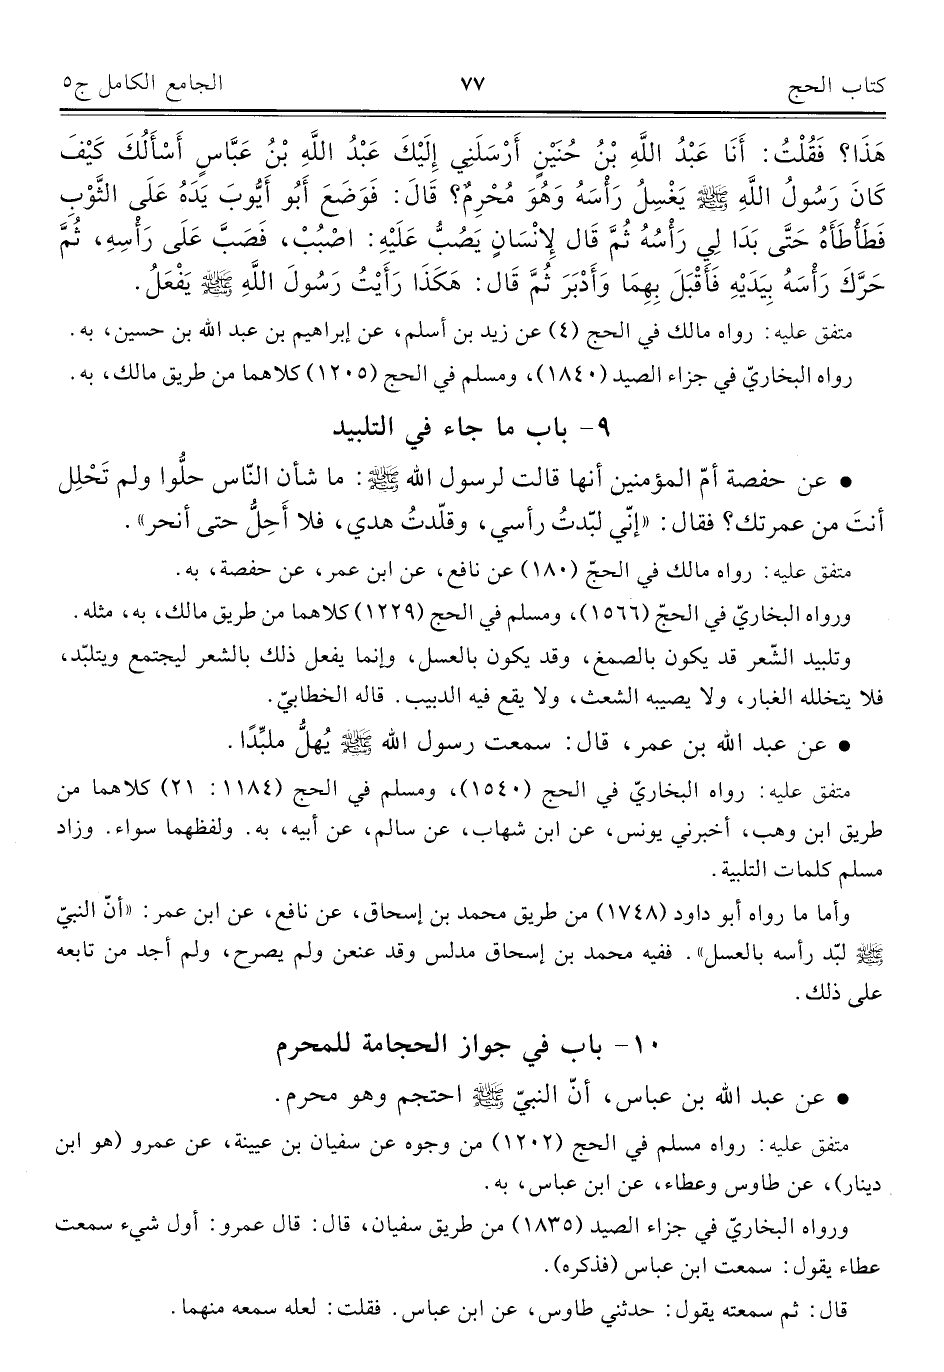 كتاب الحج ٧٧ الجامع الكامل ج٥
هَذَا؟ فَقُلْتُ: أَنَا عَبْدُ اللَّهِ بْنُ حُنَيْنٍ أَرْسَلَنِي إِلَيْكَ عَبْدُ اللَّهِ بْنُ عَبَّاسٍ أَسْأَلُكَ كَيْفَ
كَانَ رَسُولُ اللَّهِ ﷺ يَغْسِلُ رَأْسَهُ وَهُوَ مُحْرِمٌ؟ قَالَ: فَوَضَعَ أَبُو أَيُّوبَ يَدَهُ عَلَى الثَّوْبِ
فَطَأْطَأَهُ حَتَّى بَدَا لِي رَأْسُهُ ثُمَّ قَالَ لِإِنْسَانٍ يَصُبُّ عَلَيْهِ: اصْبُبْ، فَصَبَّ عَلَى رَأْسِهِ، ثُمَّ
حَرَّكَ رَأْسَهُ بِيَدَيْهِ فَأَقْبَلَ بِهِمَا وَأَدْبَرَ ثُمَّ قَالَ: هَكَذَا رَأَيْتُ رَسُولَ اللَّهِ ﷺ يَفْعَلُ.
متفق عليه: رواه مالك في الحج (٤) عن زيد بن أسلم، عن إبراهيم بن عبد الله بن حسين، به.
رواه البخاريّ في جزاء الصيد (١٨٤٠)، ومسلم في الحج (١٢٠٥) كلاهما من طريق مالك، به.
٩- باب ما جاء في التلبيد
• عن حفصة أمّ المؤمنين أنها قالت لرسول الله ﷺ: ما شأن النّاس حلُّوا ولم تَحْلِل
أنتَ من عمرتك؟ فقال: «إنّي لبّدتُ رأسي، وقلّدتُ هدي، فلا أَحِلُّ حتى أنحر».
متفق عليه: رواه مالك في الحجّ (١٨٠) عن نافع، عن ابن عمر، عن حفصة، به.
ورواه البخاريّ في الحجّ (١٥٦٦)، ومسلم في الحج (١٢٢٩) كلاهما من طريق مالك، به، مثله.
وتلبيد الشّعر قد يكون بالصمغ، وقد يكون بالعسل، وإنما يفعل ذلك بالشعر ليجتمع ويتلبّد،
فلا يتخلله الغبار، ولا يصيبه الشعث، ولا يقع فيه الدبيب. قاله الخطابيّ.
• عن عبد الله بن عمر، قال: سمعت رسول الله ﷺ يُهلُّ ملبِّدًا.
متفق عليه: رواه البخاريّ في الحج (١٥٤٠)، ومسلم في الحج (١١٨٤: ٢١) كلاهما من
طريق ابن وهب، أخبرني يونس، عن ابن شهاب، عن سالم، عن أبيه، به. ولفظهما سواء. وزاد
مسلم كلمات التلبية.
وأما ما رواه أبو داود (١٧٤٨) من طريق محمد بن إسحاق، عن نافع، عن ابن عمر: «أنّ النبيّ
ﷺ لبّد رأسه بالعسل». ففيه محمد بن إسحاق مدلس وقد عنعن ولم يصرح، ولم أجد من تابعه
على ذلك.
١٠- باب في جواز الحجامة للمحرم
• عن عبد الله بن عباس، أنّ النبيّ ﷺ احتجم وهو محرم.
متفق عليه: رواه مسلم في الحج (١٢٠٢) من وجوه عن سفيان بن عيينة، عن عمرو (هو ابن
دينار)، عن طاوس وعطاء، عن ابن عباس، به.
ورواه البخاريّ في جزاء الصيد (١٨٣٥) من طريق سفيان، قال: قال عمرو: أول شيء سمعت
عطاء يقول: سمعت ابن عباس (فذكره).
قال: ثم سمعته يقول: حدثني طاوس، عن ابن عباس. فقلت: لعله سمعه منهما.